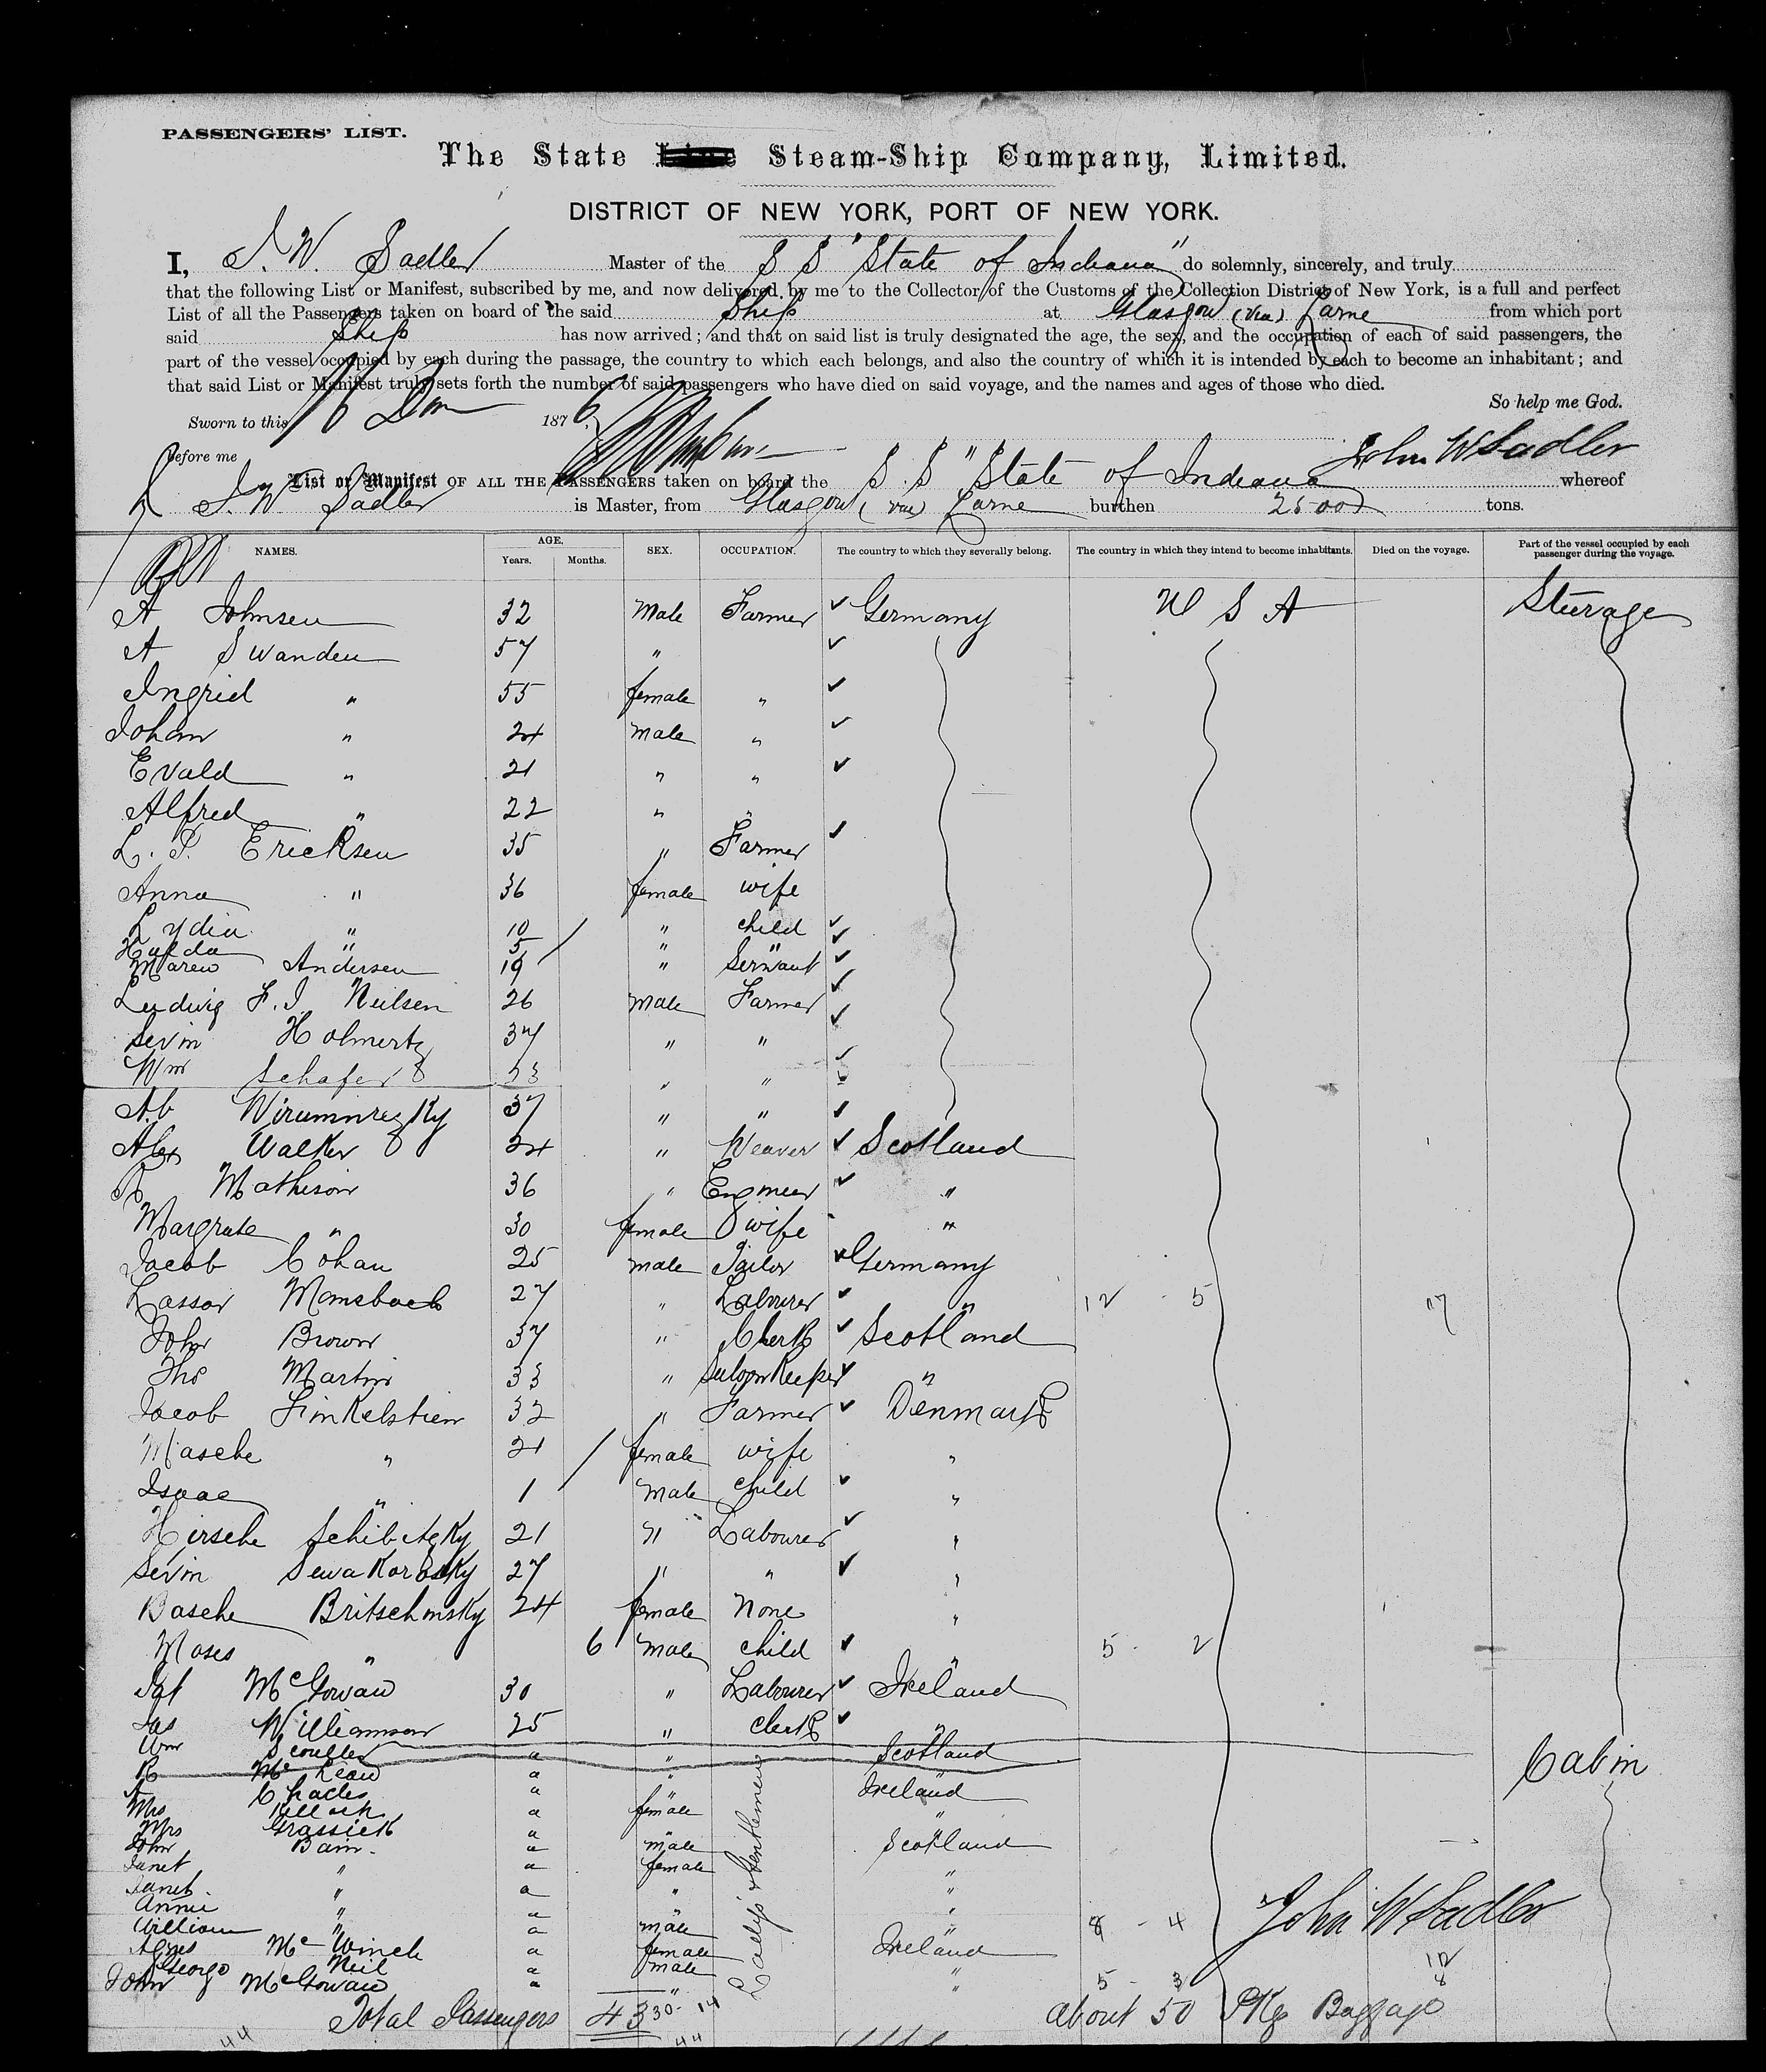 PASSENGERS' LIST.
The State Line Steam-Ship Company, Limited.
DISTRICT OF NEW YORK, PORT OF NEW YORK.
I, J. W. Sadler Master of the S S "State of Indiana" do solemnly, sincerely, and truly
that the following List or Manifest, subscribed by me, and now delivered by me to the Collector of the Customs of the Collection District of New York, is a full and perfect
List of all the Passengers taken on board of the said Ship at Glasgow (via) Larne from which port
said Ship has now arrived; and that on said list is truly designated the age, the sex, and the occupation of each of said passengers, the
part of the vessel occupied by each during the passage, the country to which each belongs, and also the country of which it is intended by each to become an inhabitant; and
that said List or Manifest truly sets forth the number of said passengers who have died on said voyage, and the names and ages of those who died.
So help me God.
Sworn to this 16 1876
before me John W Sadler
List or Manifest OF ALL THE PASSENGERS taken on board the S. S "State of Indiana whereof
J. W. Sadler is Master, from Glasgow (via) Larne burthen 2500 tons.
NAMES. AGE. Years. Months. SEX. OCCUPATION. The country to which they severally belong. The country in which they intend to become inhabitants. Died on the voyage. Part of the vessel occupied by each passenger during the voyage.
A Johnsen 32 Male Farmer Germany U S A Steerage
A Swanden 57 "
Ingrid " 55 female "
Johan " 24 male "
Evald " 21 " "
Alfred " 22 " "
L. P. Ericksen 35 " Farmer
Anna " 36 female wife
Lydia " 10 " child
Hulda " 5 " "
Maren Andersen 19 " Servant
Ludwig F. J. Neilsen 26 Male Farmer
Sevin Holmertz 37 " "
Wm Schafer 33 " "
Ab Wirumnrezky 37 " "
Alex Walker 24 " Weaver Scotland
R Mathison 36 " Engineer "
Margrate " 30 female wife "
Jacob Cohan 25 male Tailor Germany
Lassar Mansbach 27 " Labourer " 12 - 5 17
John Brown 37 " Clerk Scotland
Tho Martin 33 " Saloon Keeper "
Jacob Finkelstien 32 " Farmer Denmark
Masche " 21 female wife "
Isaac " 1 Male Child "
Hirsche Schibitzky 21 " Labourer "
Sevin Sewakorbsky 27 " " "
Basche Britschinsky 24 female None "
Moses " 6 male child " 5 - 2
Pat McGowan 30 " Labourer Ireland
Jas Williamson 25 " Clerk "
Wm Scouller a " Scotland Cabin
R McLean a "
A Charles a " Ireland
Mrs Kellock a female "
Mrs Grassick a "
John Bain a male Scotland
Janet " a female "
Janet " a " "
Annie " a " "
William " a male " 8 - 4 John W Sadler
Agnes McWinch a female Ireland
George Neil a male " 12
John McGowan a " " 5 - 3 8
Ladys & Gentlemen
Total Passengers 43 30 - 14 about 50 Pkgs Baggage
44 44